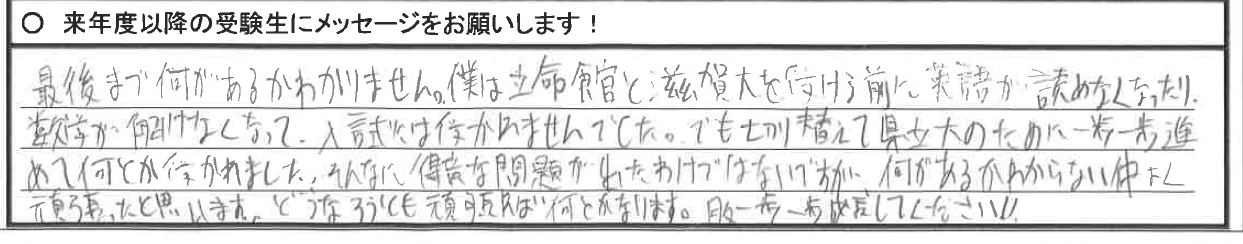 ○ 来年度以降の受験生にメッセージをお願いします！
最後まで何があるかわかりません。僕は立命館と滋賀大を受ける前に英語が読めなくなったり、
数学が解けなくなって、入試には受かれませんでした。でも切り替えて県立大のために一歩一歩進
めて何とか受かれました。そんなに得意な問題が出たわけではないですが、何があるかわからない中よく
頑張ったと思います。どうなろうとも頑張れば何とかなります。日々一歩一歩成長してください!!